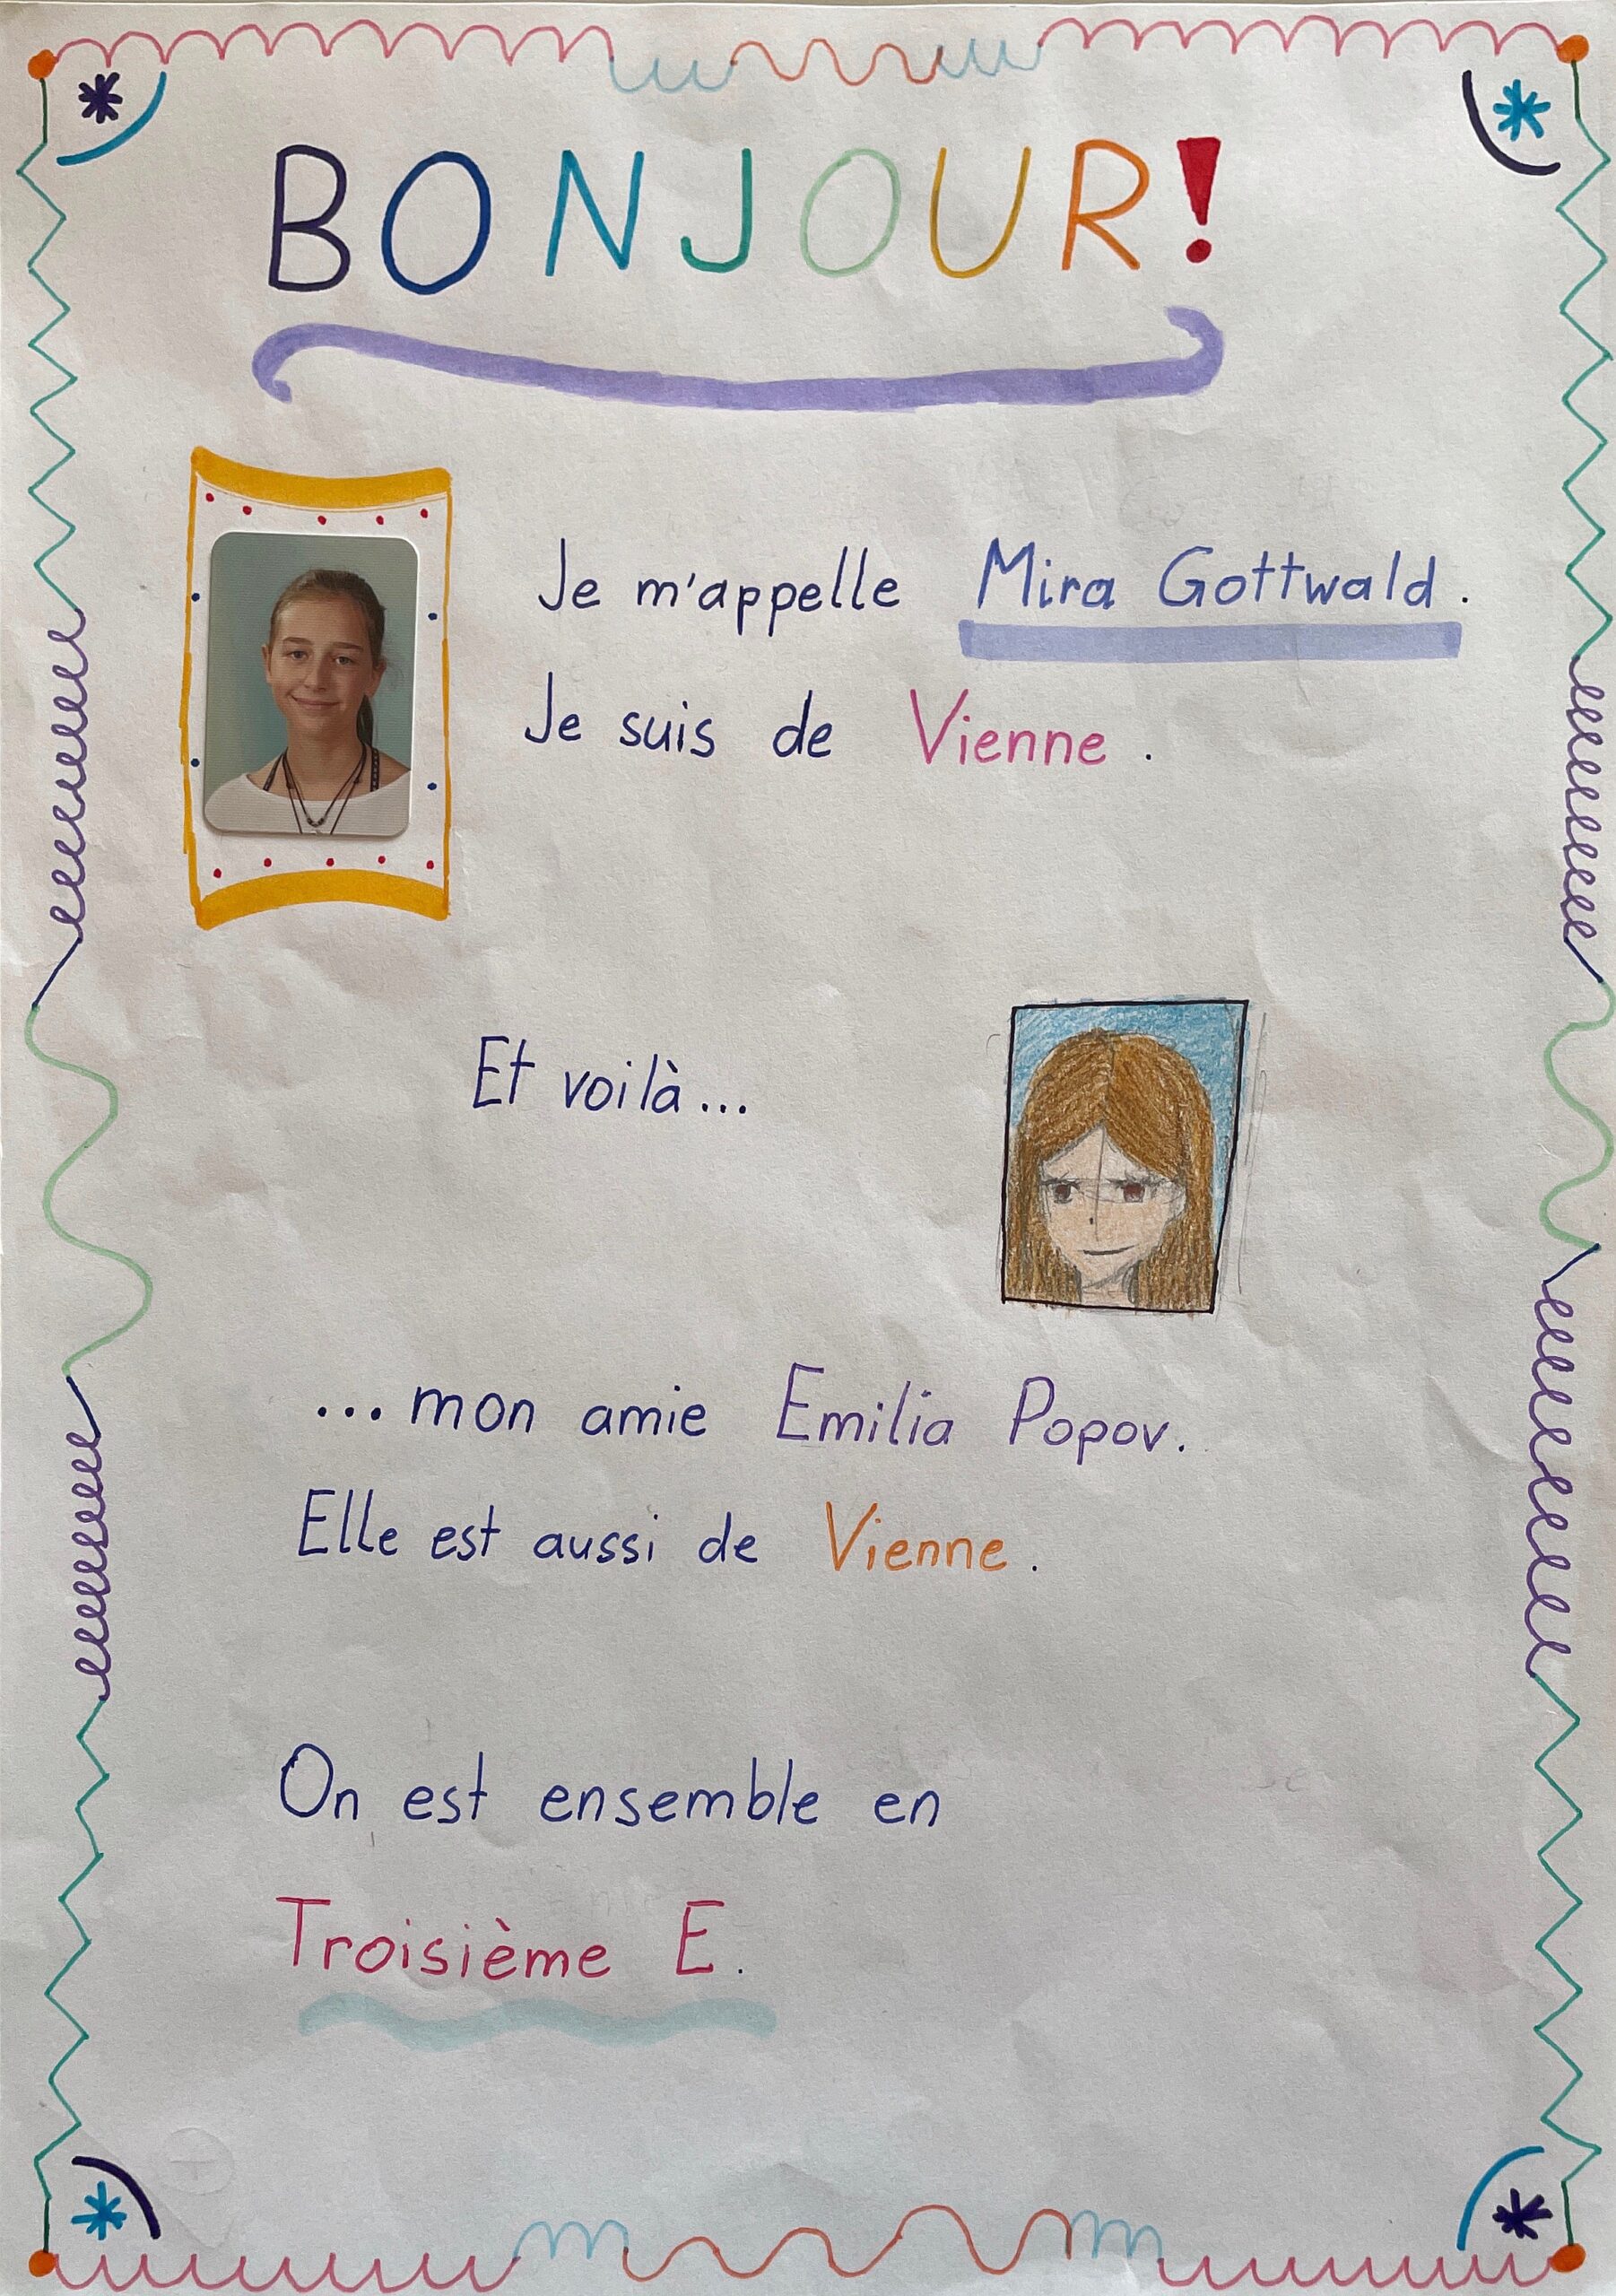 BONJOUR!
Je m'appelle Mira Gottwald.
Je suis de Vienne.
Et voilà...
...mon amie Emilia Popov.
Elle est aussi de Vienne.
On est ensemble en
Troisième E.